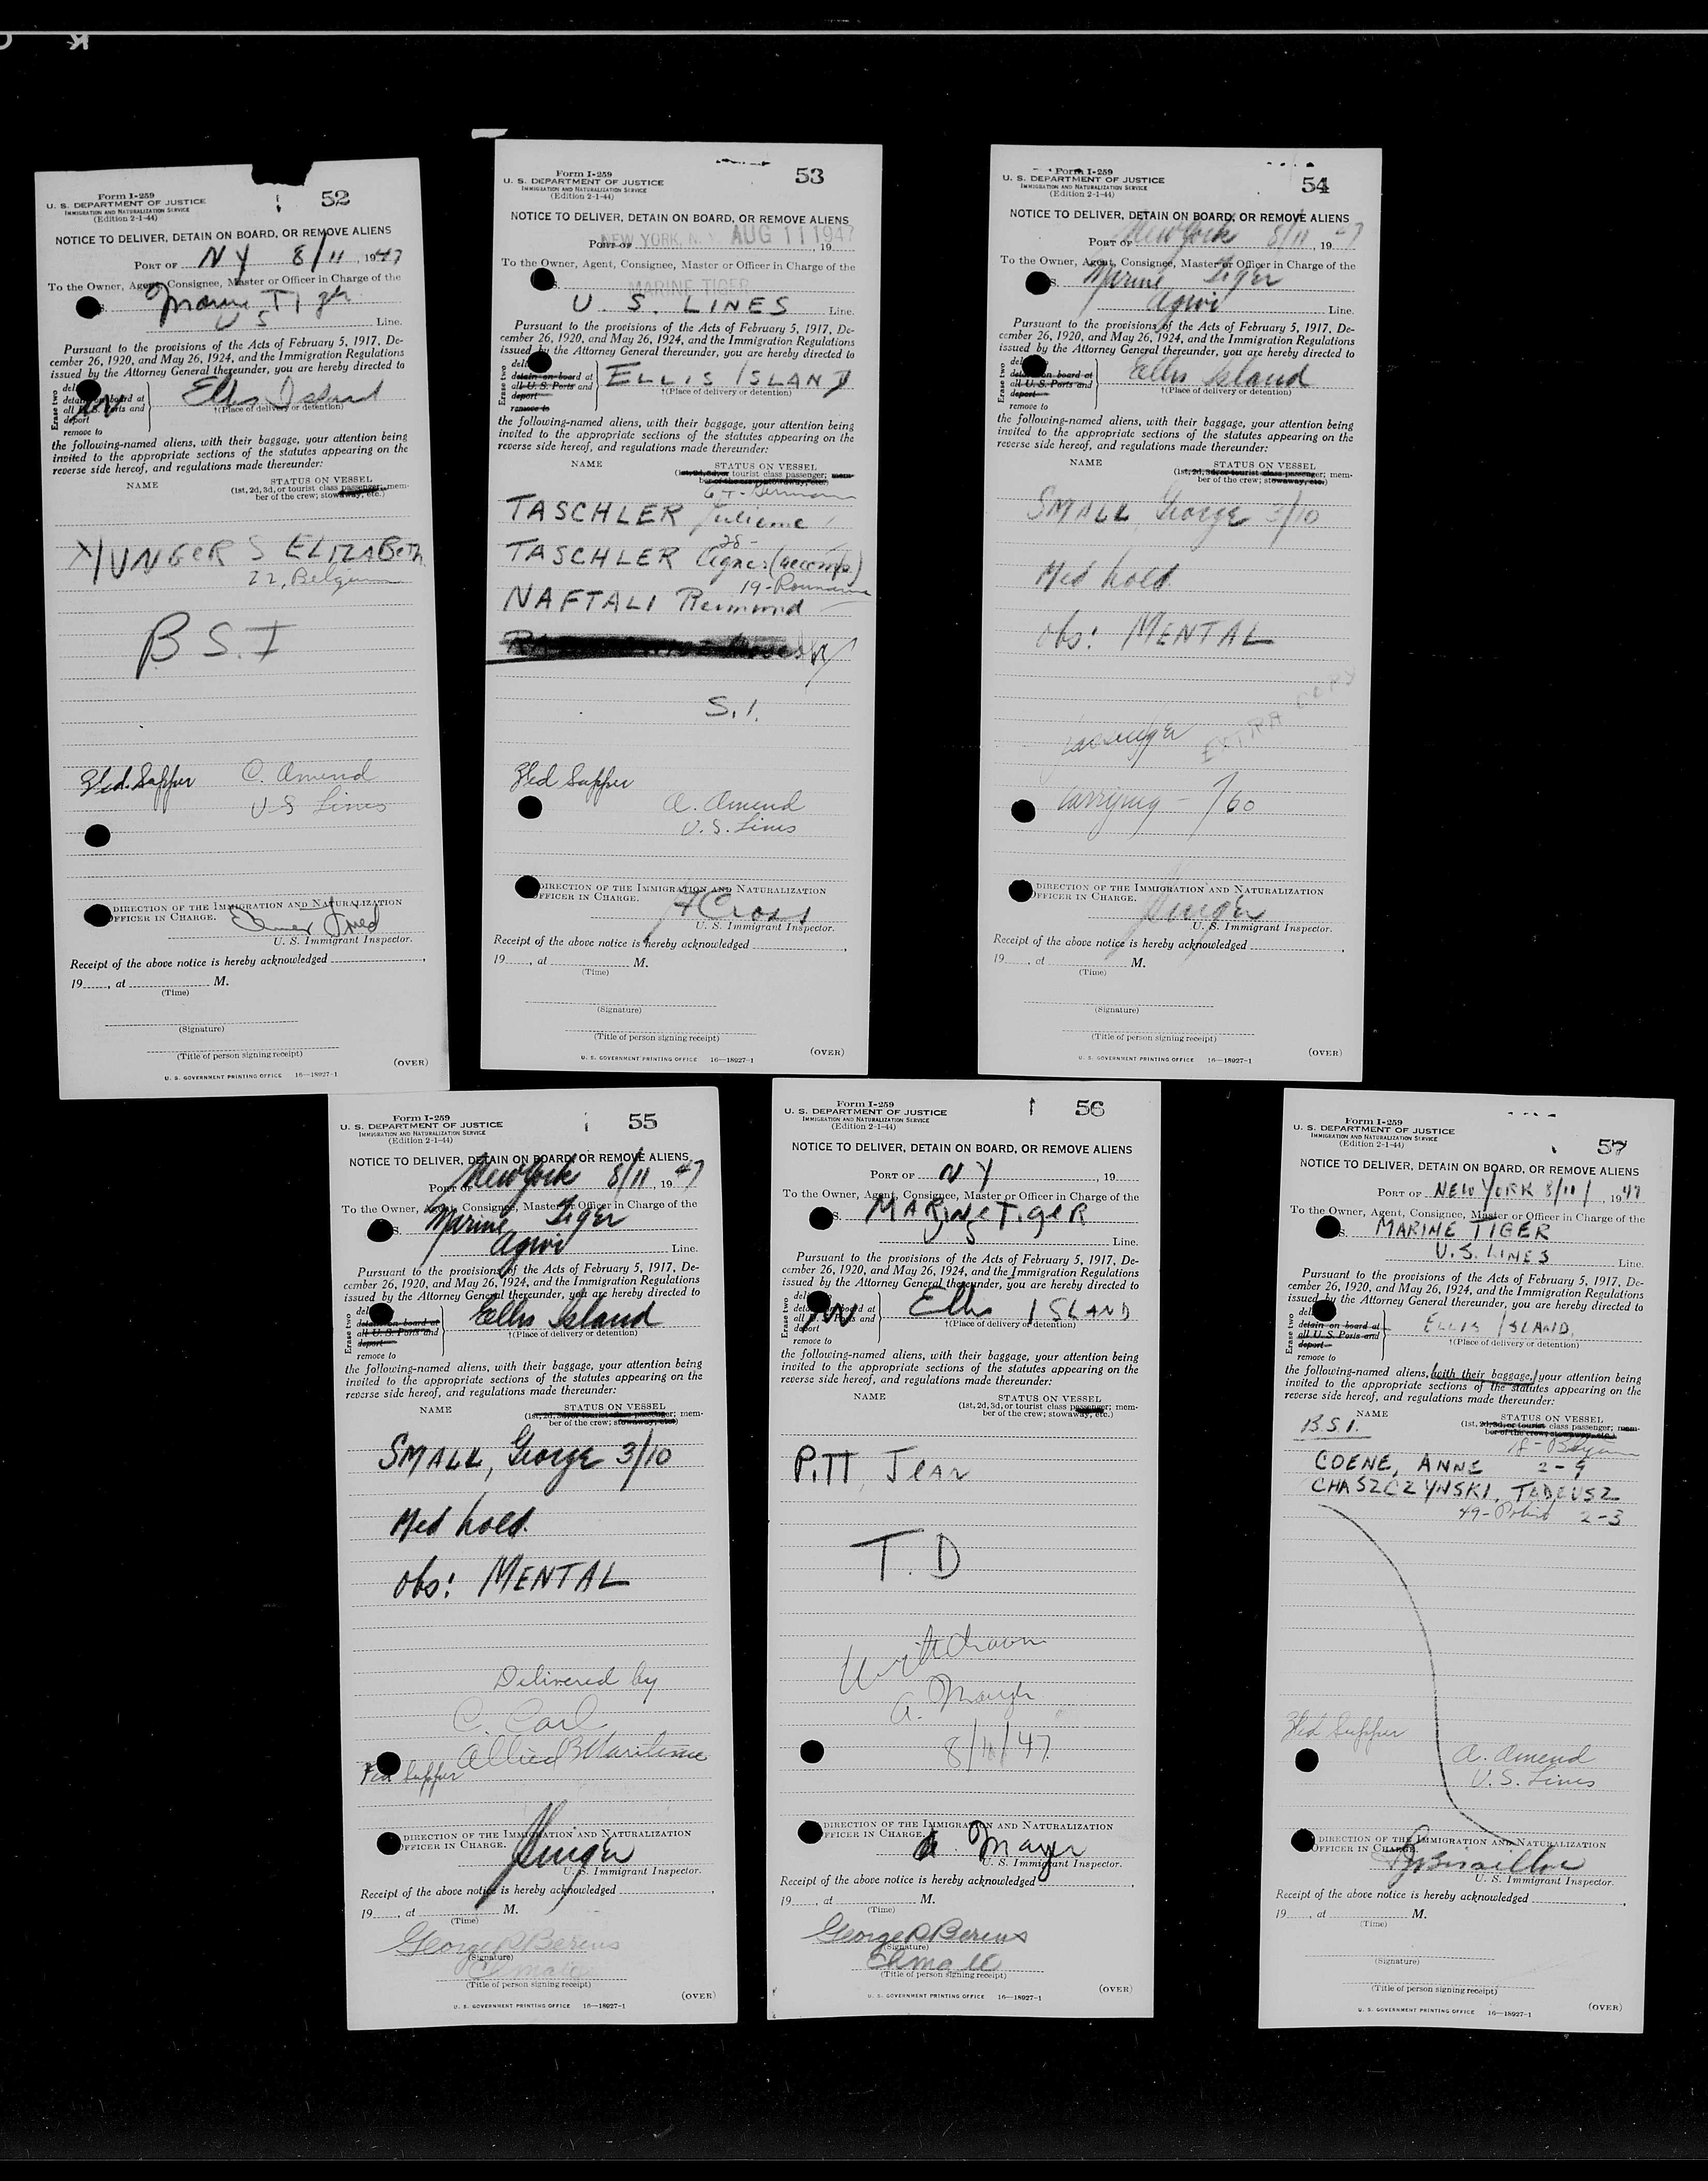 Form I-259
U. S. DEPARTMENT OF JUSTICE
IMMIGRATION AND NATURALIZATION SERVICE
(Edition 2-1-44)
52
NOTICE TO DELIVER, DETAIN ON BOARD, OR REMOVE ALIENS
PORT OF N Y 8/11, 1947
To the Owner, Agent, Consignee, Master or Officer in Charge of the
Marine Tiger
U S Line.
Pursuant to the provisions of the Acts of February 5, 1917, De-
cember 26, 1920, and May 26, 1924, and the Immigration Regulations
issued by the Attorney General thereunder, you are hereby directed to
Erase two
detain on board at
all U. S. Ports and
deport
remove to
Ellis Island
†(Place of delivery or detention)
the following-named aliens, with their baggage, your attention being
invited to the appropriate sections of the statutes appearing on the
reverse side hereof, and regulations made thereunder:
NAME STATUS ON VESSEL
(1st, 2d, 3d, or tourist class passenger; mem-
ber of the crew; stowaway, etc.)
YUNGERS ELIZABETH
22, Belgium
B S. I
Fed. Supper
Amend
US Lines
DIRECTION OF THE IMMIGRATION AND NATURALIZATION
OFFICER IN CHARGE.
U. S. Immigrant Inspector.
Receipt of the above notice is hereby acknowledged
19, at M.
(Time)
(Signature)
(Title of person signing receipt)
(OVER)
U. S. GOVERNMENT PRINTING OFFICE 16—18927-1
Form I-259
U. S. DEPARTMENT OF JUSTICE
IMMIGRATION AND NATURALIZATION SERVICE
(Edition 2-1-44)
53
NOTICE TO DELIVER, DETAIN ON BOARD, OR REMOVE ALIENS
PORT OF NEW YORK, N. Y. AUG 11 1947 19
To the Owner, Agent, Consignee, Master or Officer in Charge of the
MARINE TIGER
U. S. LINES Line.
Pursuant to the provisions of the Acts of February 5, 1917, De-
cember 26, 1920, and May 26, 1924, and the Immigration Regulations
issued by the Attorney General thereunder, you are hereby directed to
Erase two
detain on board at
all U. S. Ports and
deport
remove to
ELLIS ISLAND
†(Place of delivery or detention)
the following-named aliens, with their baggage, your attention being
invited to the appropriate sections of the statutes appearing on the
reverse side hereof, and regulations made thereunder:
NAME STATUS ON VESSEL
(1st, 2d, 3d, or tourist class passenger; mem-
ber of the crew; stowaway, etc.)
TASCHLER Julienne
28-
TASCHLER Agnes (accomp.)
19-Roumania
NAFTALI
S. I.
Fed Supper
A. Amend
U. S. Lines
DIRECTION OF THE IMMIGRATION AND NATURALIZATION
OFFICER IN CHARGE.
Cross
U. S. Immigrant Inspector.
Receipt of the above notice is hereby acknowledged
19, at M.
(Time)
(Signature)
(Title of person signing receipt)
(OVER)
U. S. GOVERNMENT PRINTING OFFICE 16—18927-1
Form I-259
U. S. DEPARTMENT OF JUSTICE
IMMIGRATION AND NATURALIZATION SERVICE
(Edition 2-1-44)
54
NOTICE TO DELIVER, DETAIN ON BOARD, OR REMOVE ALIENS
PORT OF New York 8/11, 1947
To the Owner, Agent, Consignee, Master or Officer in Charge of the
Marine Tiger
Agwi Line.
Pursuant to the provisions of the Acts of February 5, 1917, De-
cember 26, 1920, and May 26, 1924, and the Immigration Regulations
issued by the Attorney General thereunder, you are hereby directed to
Erase two
detain on board at
all U. S. Ports and
deport
remove to
Ellis Island
†(Place of delivery or detention)
the following-named aliens, with their baggage, your attention being
invited to the appropriate sections of the statutes appearing on the
reverse side hereof, and regulations made thereunder:
NAME STATUS ON VESSEL
(1st, 2d, 3d, or tourist class passenger; mem-
ber of the crew; stowaway, etc.)
SMALL, George 3/10
Med hold.
Obs: MENTAL
EXTRA COPY
passenger
carrying - 60
DIRECTION OF THE IMMIGRATION AND NATURALIZATION
OFFICER IN CHARGE.
U. S. Immigrant Inspector.
Receipt of the above notice is hereby acknowledged
19, at M.
(Time)
(Signature)
(Title of person signing receipt)
(OVER)
U. S. GOVERNMENT PRINTING OFFICE 16—18927-1
Form I-259
U. S. DEPARTMENT OF JUSTICE
IMMIGRATION AND NATURALIZATION SERVICE
(Edition 2-1-44)
55
NOTICE TO DELIVER, DETAIN ON BOARD, OR REMOVE ALIENS
PORT OF New York 8/11, 1947
To the Owner, Agent, Consignee, Master or Officer in Charge of the
Marine Tiger
Agwi Line.
Pursuant to the provisions of the Acts of February 5, 1917, De-
cember 26, 1920, and May 26, 1924, and the Immigration Regulations
issued by the Attorney General thereunder, you are hereby directed to
Erase two
detain on board at
all U. S. Ports and
deport
remove to
Ellis Island
†(Place of delivery or detention)
the following-named aliens, with their baggage, your attention being
invited to the appropriate sections of the statutes appearing on the
reverse side hereof, and regulations made thereunder:
NAME STATUS ON VESSEL
(1st, 2d, 3d, or tourist class passenger; mem-
ber of the crew; stowaway, etc.)
SMALL, George 3/10
Med hold.
Obs: MENTAL
Delivered by
C. Carl
Allied Maritime
Fed Supper
DIRECTION OF THE IMMIGRATION AND NATURALIZATION
OFFICER IN CHARGE.
U. S. Immigrant Inspector.
Receipt of the above notice is hereby acknowledged
19, at M.
(Time)
George Berens
(Signature)
(Title of person signing receipt)
(OVER)
U. S. GOVERNMENT PRINTING OFFICE 16—18927-1
Form I-259
U. S. DEPARTMENT OF JUSTICE
IMMIGRATION AND NATURALIZATION SERVICE
(Edition 2-1-44)
56
NOTICE TO DELIVER, DETAIN ON BOARD, OR REMOVE ALIENS
PORT OF N Y, 19
To the Owner, Agent, Consignee, Master or Officer in Charge of the
MARINE TIGER
Line.
Pursuant to the provisions of the Acts of February 5, 1917, De-
cember 26, 1920, and May 26, 1924, and the Immigration Regulations
issued by the Attorney General thereunder, you are hereby directed to
Erase two
detain on board at
all U. S. Ports and
deport
remove to
Ellis ISLAND
†(Place of delivery or detention)
the following-named aliens, with their baggage, your attention being
invited to the appropriate sections of the statutes appearing on the
reverse side hereof, and regulations made thereunder:
NAME STATUS ON VESSEL
(1st, 2d, 3d, or tourist class passenger; mem-
ber of the crew; stowaway, etc.)
PITT Jean
T. D
Withdrawn
8/11/47
DIRECTION OF THE IMMIGRATION AND NATURALIZATION
OFFICER IN CHARGE.
U. S. Immigrant Inspector.
Receipt of the above notice is hereby acknowledged
19, at M.
(Time)
George Berens
(Signature)
(Title of person signing receipt)
(OVER)
U. S. GOVERNMENT PRINTING OFFICE 16—18927-1
Form I-259
U. S. DEPARTMENT OF JUSTICE
IMMIGRATION AND NATURALIZATION SERVICE
(Edition 2-1-44)
57
NOTICE TO DELIVER, DETAIN ON BOARD, OR REMOVE ALIENS
PORT OF NEW YORK 8/11/, 1947
To the Owner, Agent, Consignee, Master or Officer in Charge of the
MARINE TIGER
U. S. LINES Line.
Pursuant to the provisions of the Acts of February 5, 1917, De-
cember 26, 1920, and May 26, 1924, and the Immigration Regulations
issued by the Attorney General thereunder, you are hereby directed to
Erase two
detain on board at
all U. S. Ports and
deport
remove to
ELLIS ISLAND.
†(Place of delivery or detention)
the following-named aliens, with their baggage, your attention being
invited to the appropriate sections of the statutes appearing on the
reverse side hereof, and regulations made thereunder:
NAME STATUS ON VESSEL
(1st, 2d, 3d, or tourist class passenger; mem-
ber of the crew; stowaway, etc.)
B.S.I.
18 - Belgium
COENE, ANNE 2-9
CHASZCZYNSKI, TADEUSZ
49-Poland 2-3
Fed Supper
A. Amend
U. S. Lines
DIRECTION OF THE IMMIGRATION AND NATURALIZATION
OFFICER IN CHARGE.
U. S. Immigrant Inspector.
Receipt of the above notice is hereby acknowledged
19, at M.
(Time)
(Signature)
(Title of person signing receipt)
(OVER)
U. S. GOVERNMENT PRINTING OFFICE 16—18927-1